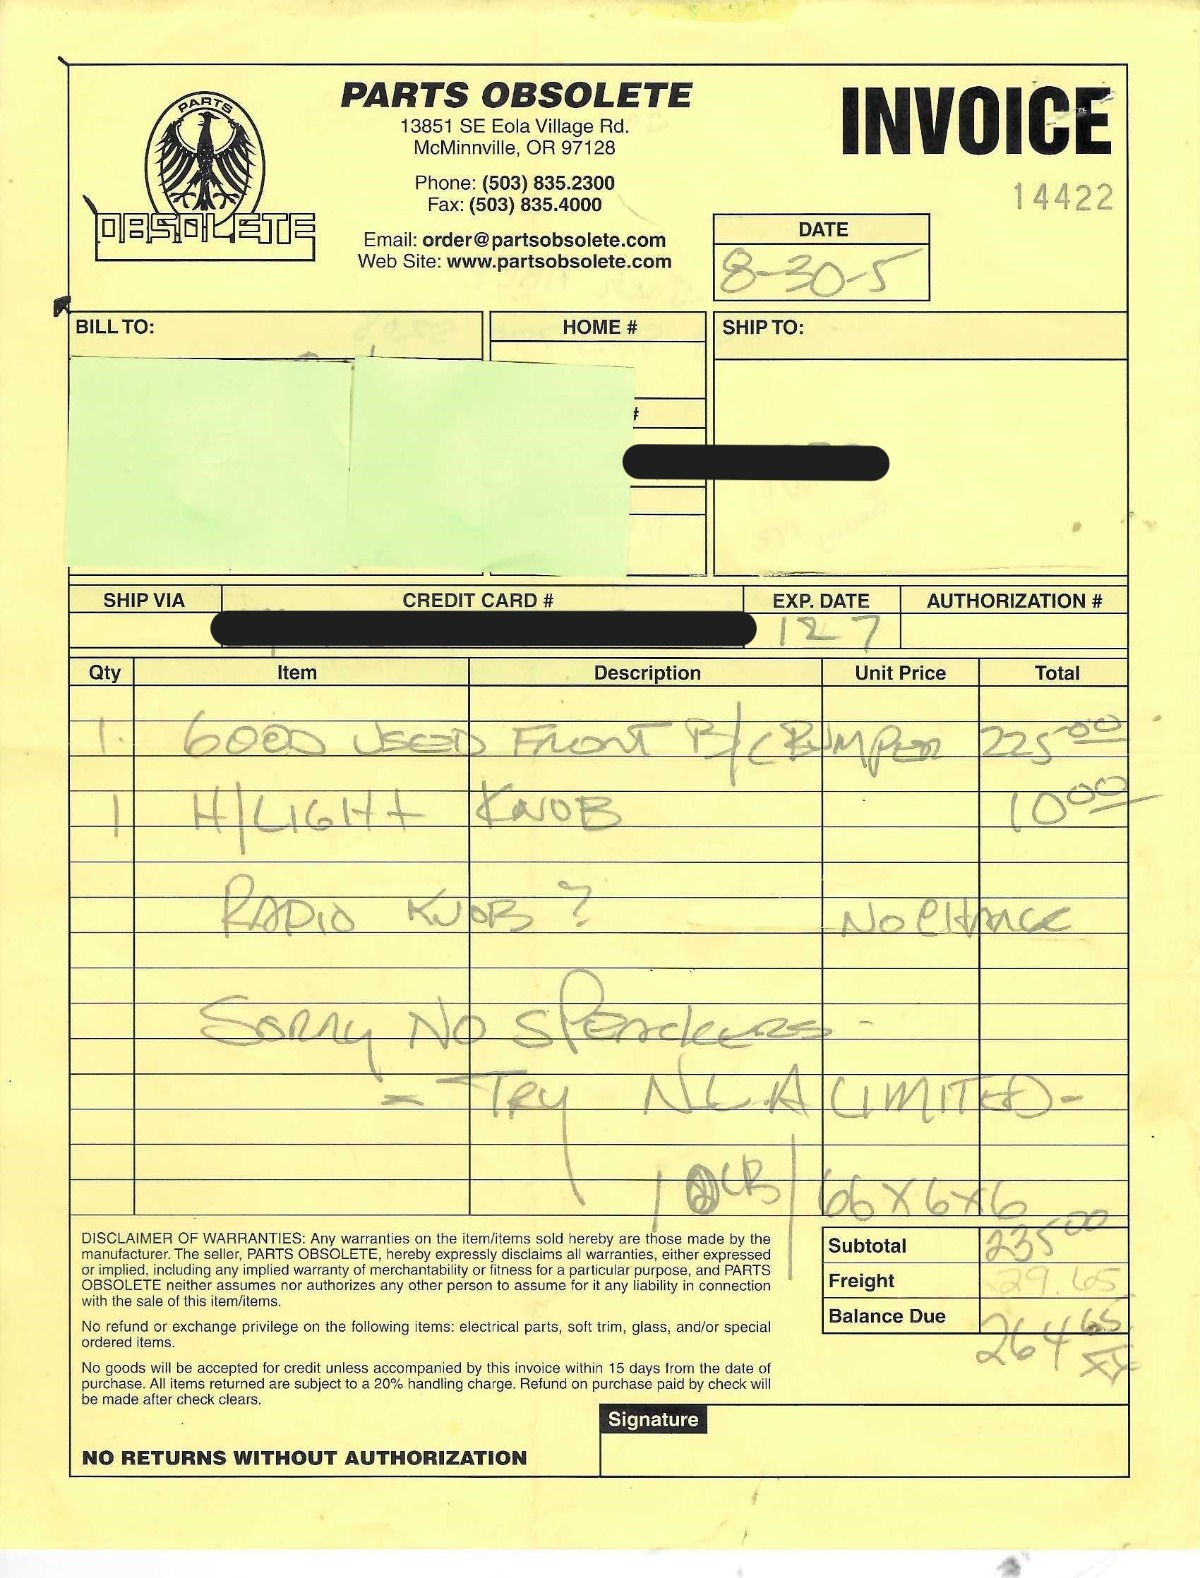 PARTS
OBSOLETE
PARTS OBSOLETE
13851 SE Eola Village Rd.
McMinnville, OR 97128
Phone: (503) 835.2300
Fax: (503) 835.4000
Email: order@partsobsolete.com
Web Site: www.partsobsolete.com
INVOICE
14422
DATE
8-30-5
BILL TO:
HOME #
SHIP TO:
#
SHIP VIA CREDIT CARD # EXP. DATE AUTHORIZATION #
12 7
Qty Item Description Unit Price Total
1. GOOD USED FRONT B/C BUMPER 225 00
1 H/LIGHT KNOB 10 00
RADIO KNOB? NO CHARGE
SORRY NO SPEACKERS -
- TRY NLA LIMITED -
LB/66X6X6
DISCLAIMER OF WARRANTIES: Any warranties on the item/items sold hereby are those made by the
manufacturer. The seller, PARTS OBSOLETE, hereby expressly disclaims all warranties, either expressed
or implied, including any implied warranty of merchantability or fitness for a particular purpose, and PARTS
OBSOLETE neither assumes nor authorizes any other person to assume for it any liability in connection
with the sale of this item/items.
No refund or exchange privilege on the following items: electrical parts, soft trim, glass, and/or special
ordered items.
No goods will be accepted for credit unless accompanied by this invoice within 15 days from the date of
purchase. All items returned are subject to a 20% handling charge. Refund on purchase paid by check will
be made after check clears.
NO RETURNS WITHOUT AUTHORIZATION
Subtotal 235 00
Freight 29.65
Balance Due 264 65
Signature